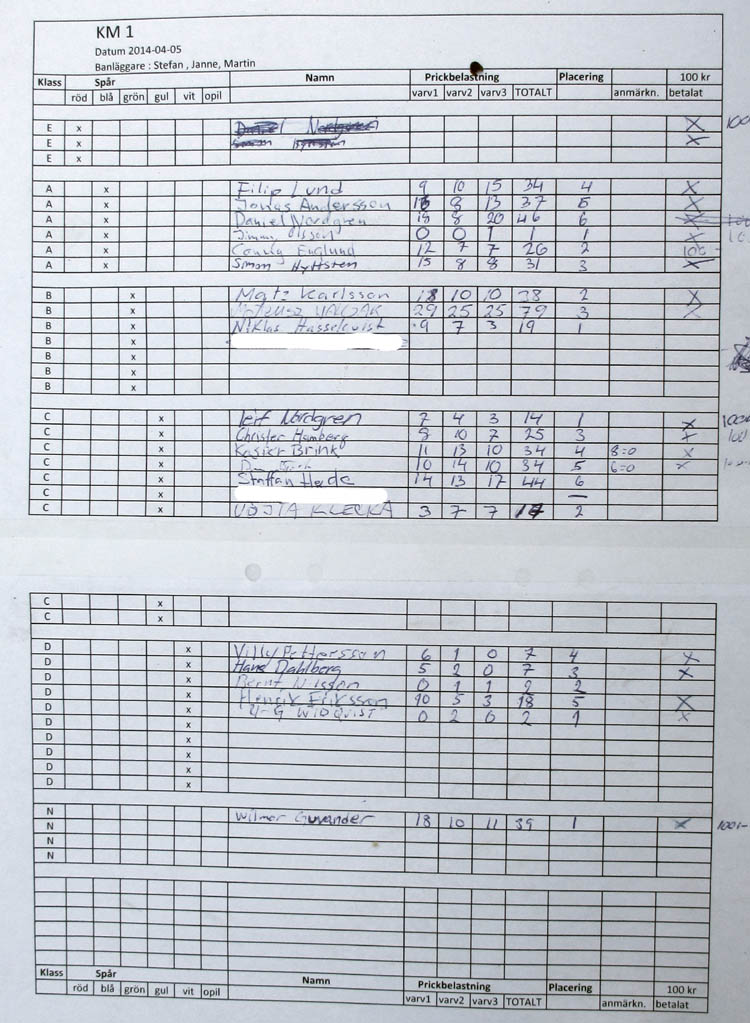 KM 1
Datum 2014-04-05
Banläggare : Stefan , Janne, Martin
Klass Spår Namn Prickbelastning Placering 100 kr
röd blå grön gul vit opil varv1 varv2 varv3 TOTALT anmärkn. betalat
E x X
E x X
E x
A x Filip Lund 9 10 15 34 4 X
A x Jonas Andersson 16 8 13 37 5 X
A x Daniel Nordgren 18 8 20 46 6
A x Jimmy Olsson 0 0 1 1 1 X
A x Conny Englund 12 7 7 26 2 100
A x Simon Hyttsten 15 8 8 31 3 X
B x Matz Karlsson 18 10 10 38 2 X
B x Mateusz 29 25 25 79 3 X
B x Niklas Hasselqvist 9 7 3 19 1
B x
B x
B x
B x
C x Leif Nordgren 7 4 3 14 1 X
C x Christer Hamberg 8 10 7 25 3 X
C x Kasier Brink 11 13 10 34 4 8=0 X
C x 10 14 10 34 5 6=0 X
C x Staffan Hede 14 13 17 44 6
C x —
C x VOJTA KLECKA 3 7 7 17 2
C x
C x
D x Villy Pettersson 6 1 0 7 4 X
D x Hans Dahlberg 5 2 0 7 3 X
D x Bernt Nilsson 0 1 1 2 2
D x Henrik Eriksson 10 5 3 18 5 X
D x U-G WIDQVIST 0 2 0 2 1 X
D x
D x
D x
D x
D x
N Wilmer Guvander 18 10 11 39 1 X 100:-
N
N
N
Klass Spår Namn Prickbelastning Placering 100 kr
röd blå grön gul vit opil varv1 varv2 varv3 TOTALT anmärkn. betalat